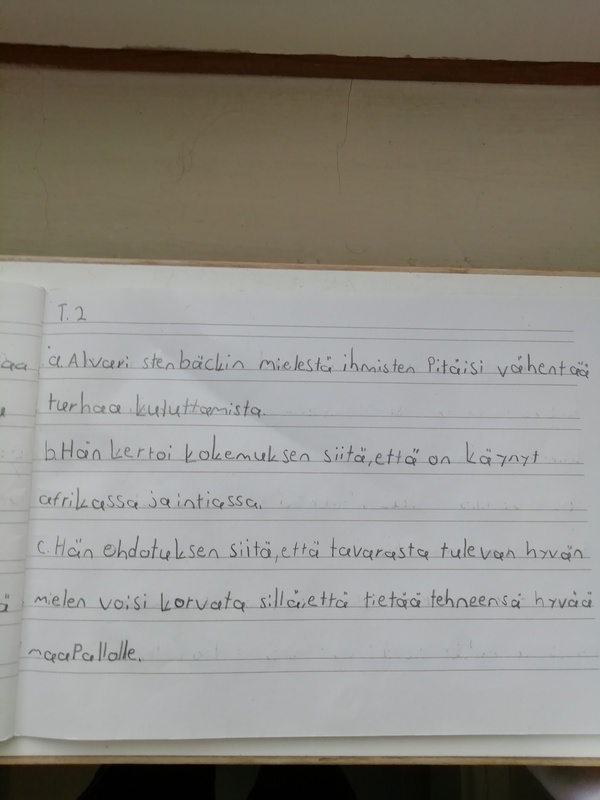 T.2
aa a. Alvari stenbäckin mielestä ihmisten Pitäisi vähentää
turhaa kuluttamista.
b. Hän kertoi kokemuksen siitä, että on käynyt
afrikassa ja intiassa.
c. Hän ehdotuksen siitä, että tavarasta tulevan hyvän
ä mielen voisi korvata sillä, että tietää tehneensä hyvää
maaPallolle.